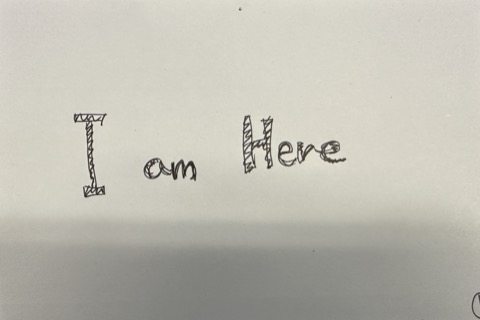 I am Here